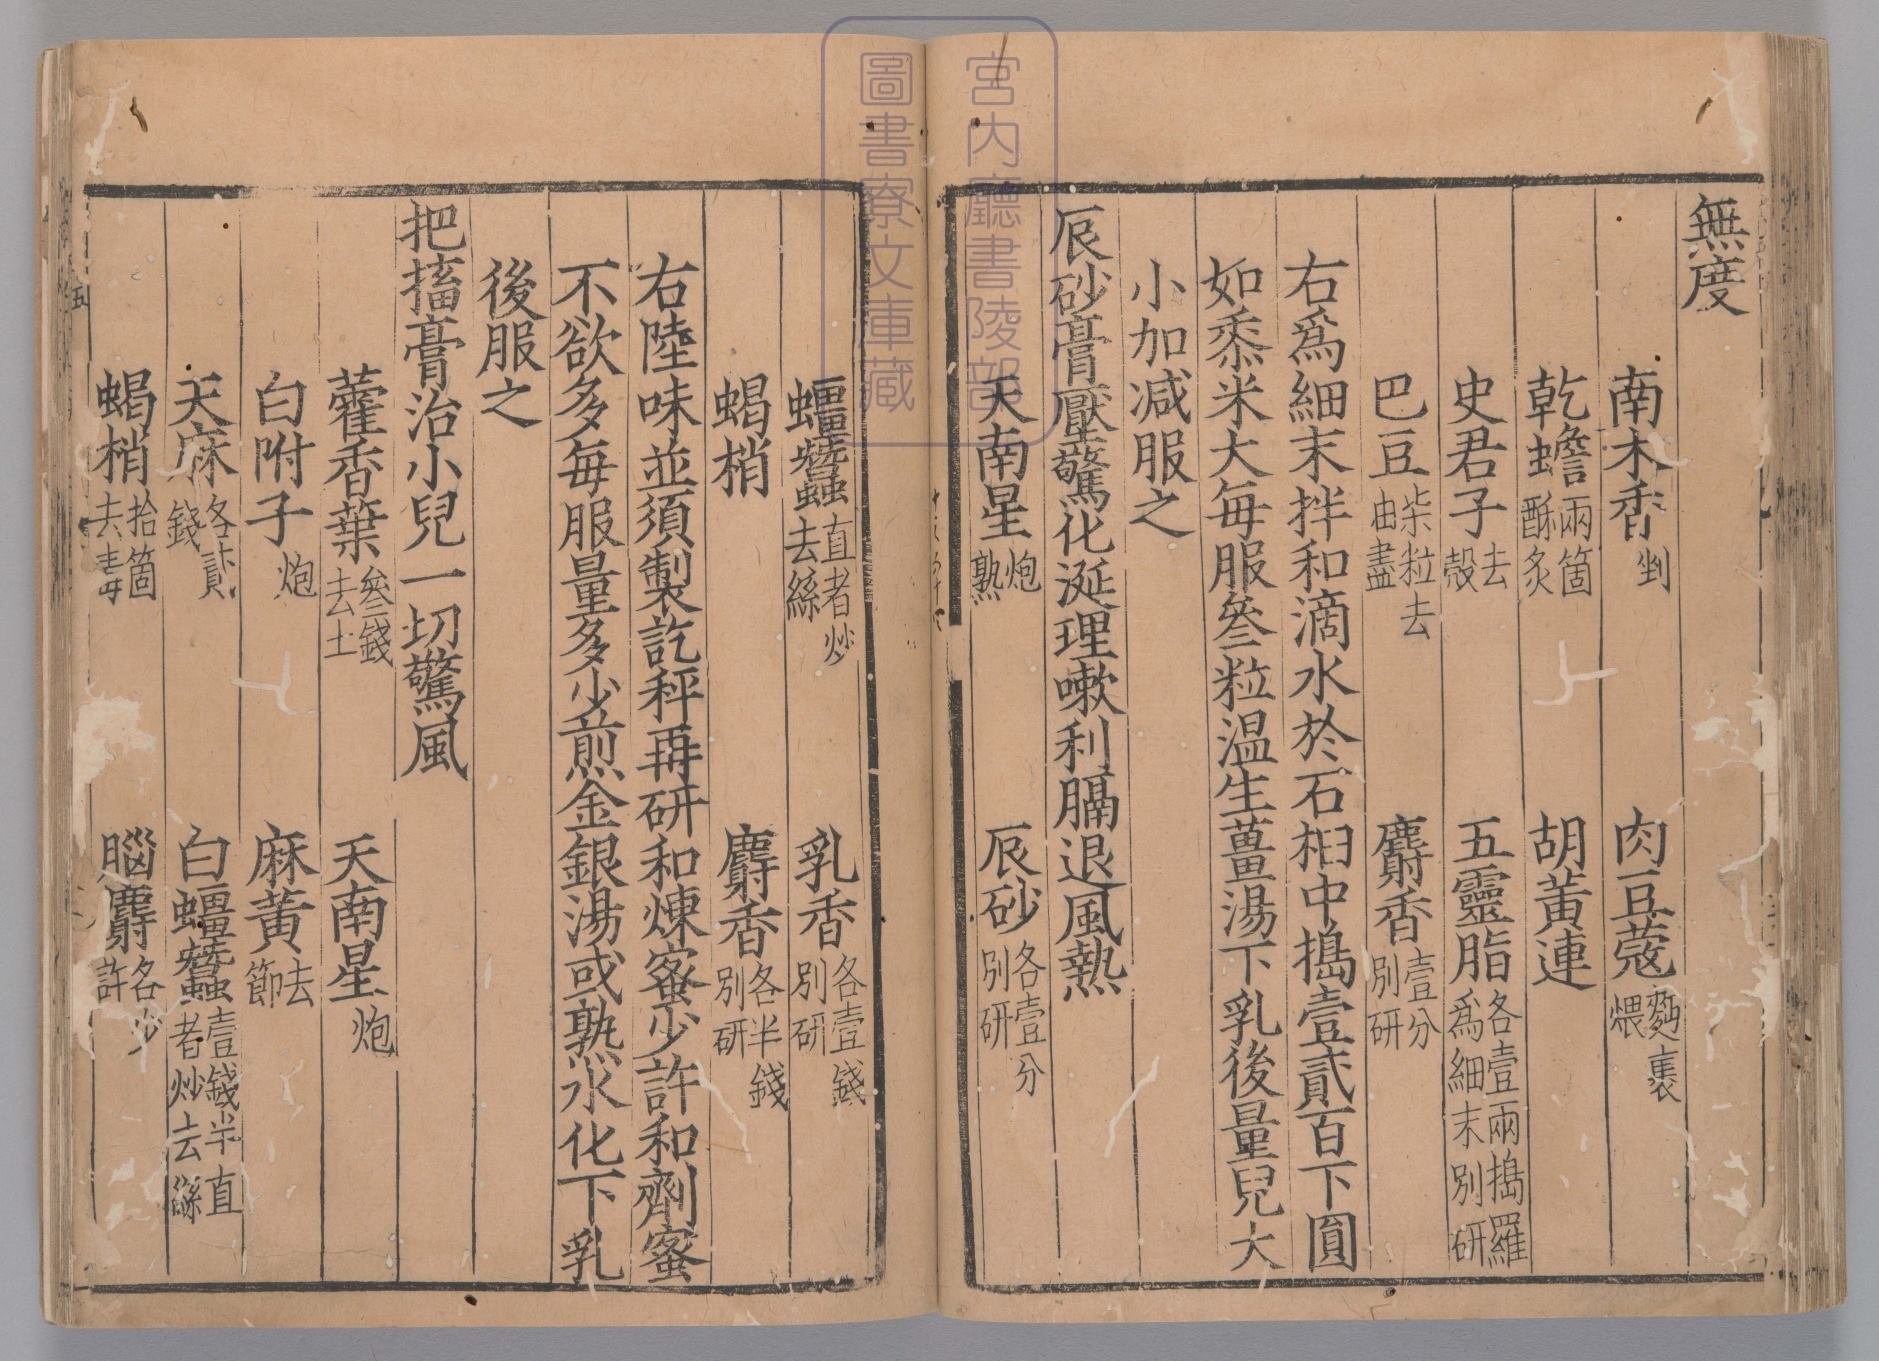 無度
南木香剉 肉豆蔻麪裹煨
乾蟾兩箇酥炙 胡黃連
史君子去殼 五靈脂各壹兩搗羅爲細末別研
巴豆柒粒去油盡 麝香壹分別研
右爲細末拌和滴水於石桕中搗壹貳百下圓
如黍米大每服叄粒温生薑湯下乳後量兒大
小加減服之
辰砂膏壓驚化涎理嗽利膈退風熱
天南星炮熟 辰砂各壹分別研
蠷蠶直者炒去絲 乳香各壹錢別研
蝎梢 麝香各半錢別研
右陸味並須製訖秤再研和煉蜜少許和劑蜜
不欲多每服量多少煎金銀湯或熟水化下乳
後服之
把搐膏治小兒一切驚風
藿香葉叄錢去土 天南星炮
白附子炮 麻黃去節
天麻各貳錢 白蠷蠶壹錢半直者炒去絲
蝎梢拾箇去毒 腦麝各少許
五
宮内廳書陵部
圖書寮文庫藏